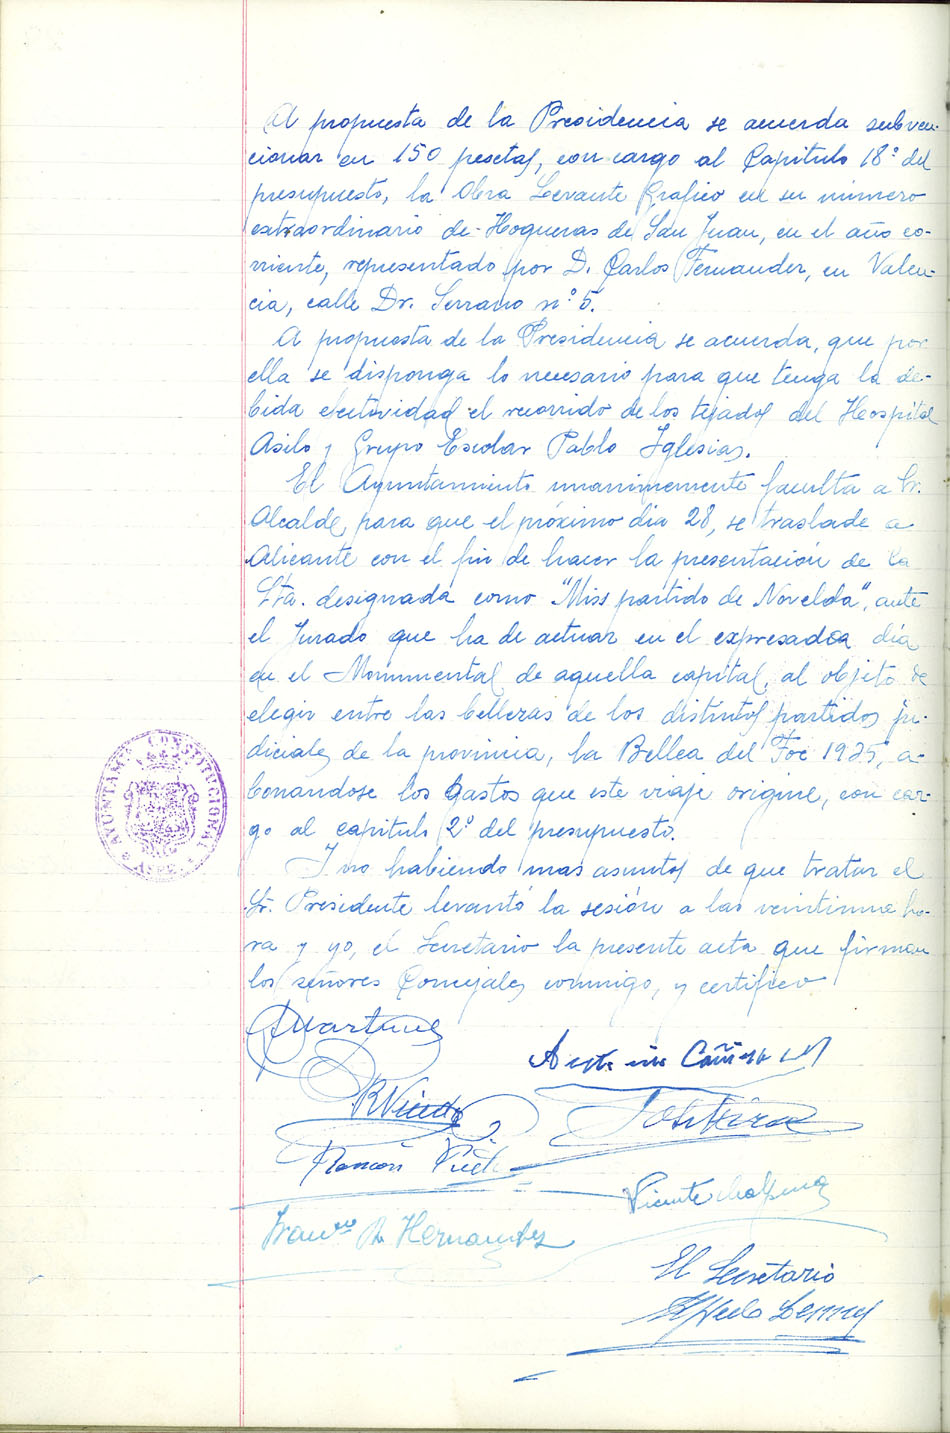 A propuesta de la Presidencia se acuerda subven-
cionar en 150 pesetas, con cargo al Capitulo 18º del
presupuesto, la Obra Levante Grafico en su número
extraordinario de Hogueras de San Juan, en el año co-
rriente, representado por D. Carlos Fernander, en Valen-
cia, calle Dr. Serrano nº 5.
A propuesta de la Presidencia se acuerda, que por
ella se disponga lo necesario para que tenga la de-
bida efectividad el recorrido de los tejados del Hospital
Asilo y Grupo Escolar Pablo Iglesias.
El Ayuntamiento unanimemente faculta a Sr.
Alcalde, para que el próximo dia 28, se traslade a
Alicante con el fin de hacer la presentación de la
Srta. designada como "Miss partido de Novelda", ante
el Jurado que ha de actuar en el expresadoa dia
en el Monumental de aquella capital, al objeto de
elegir entre las bellezas de los distintos partidos ju-
diciales de la provincia, la Bellea del Foc 1935, a-
bonandose los gastos que este viaje origine, con car-
go al capitulo 2º del presupuesto.
Y no habiendo mas asuntos de que tratar el
Sr. Presidente levantó la sesión a las veintinna ho-
ra y yo, el Secretario la presente acta que firman
los señores Concejales conmigo, y certifico
AYUNTAMTº CONSTITUCIONAL
AMartinez
R Vicedo
Ramón
Vicente
Franco R Hernandez
El Secretario